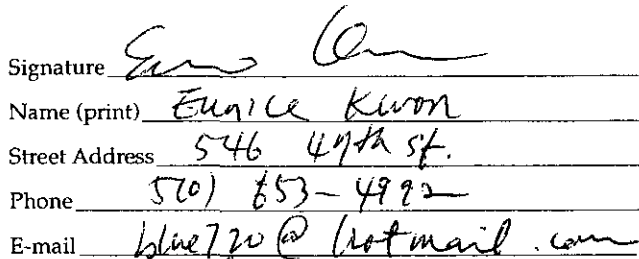 Signature
Name (print) Eunice Kwon
Street Address 546 49th St.
Phone 510) 653-4992
E-mail blue720@hotmail.com